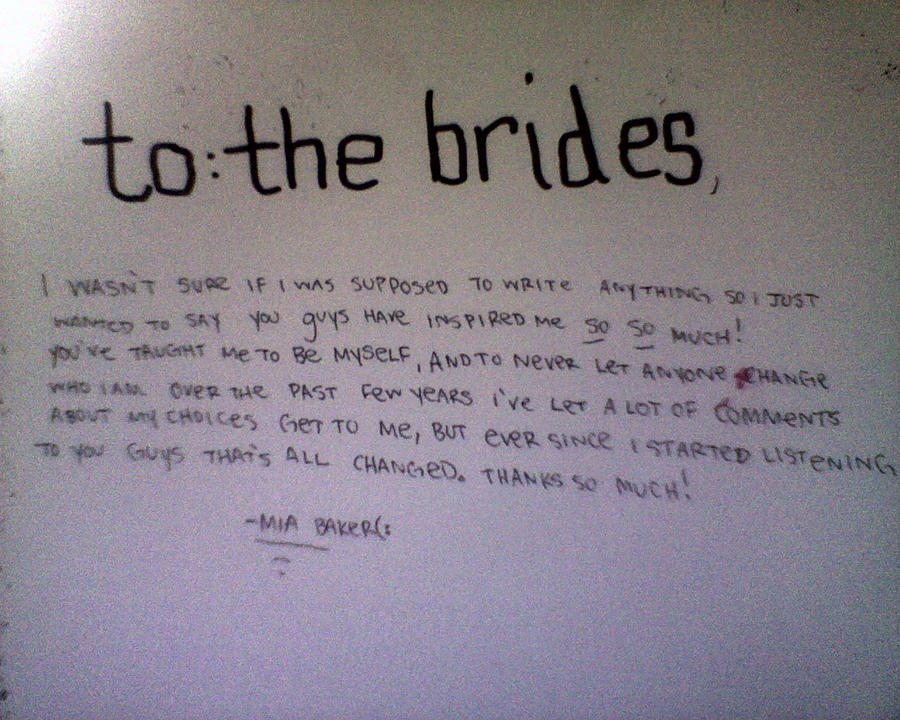 to: the brides,
I WASN'T SURE IF I WAS SUPPOSED TO WRITE ANYTHING SO I JUST
WANTED TO SAY YOU guys HAVE INSPIRED ME SO SO MUCH!
YOU'VE TAUGHT ME TO BE MYSELF, AND TO NEVER LET ANYONE CHANGE
WHO I AM. OVER THE PAST FEW YEARS I'VE LET A LOT OF COMMENTS
ABOUT MY CHOICES GET TO ME, BUT EVER SINCE I STARTED LISTENING
TO YOU GUYS THAT'S ALL CHANGED. THANKS SO MUCH!
-MIA BAKER(: